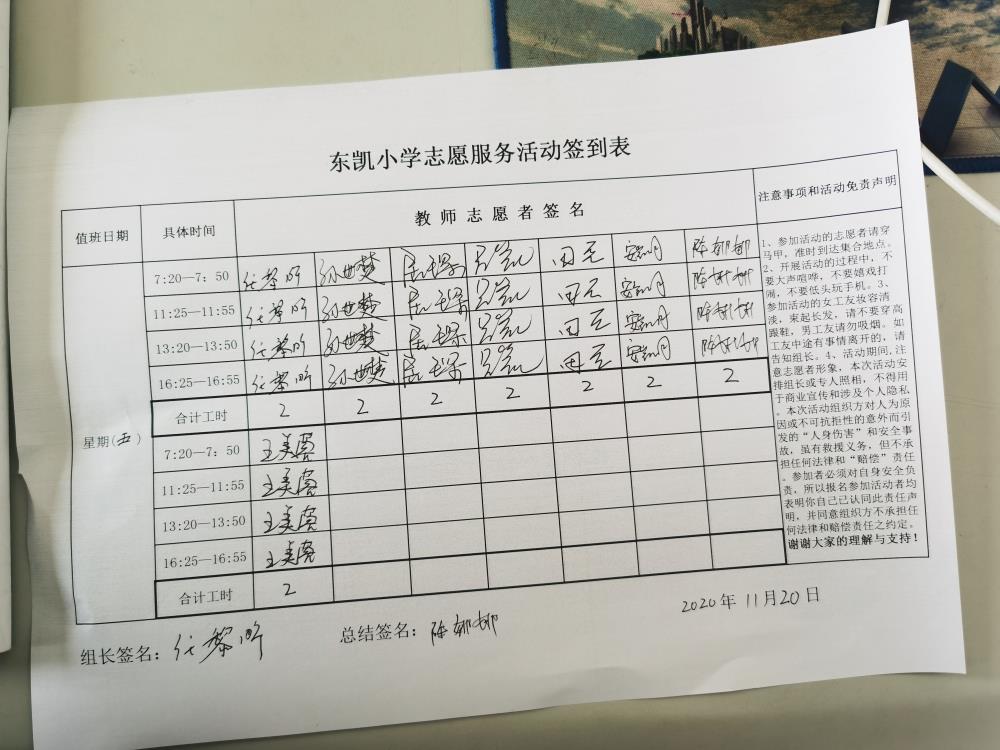 东凯小学志愿服务活动签到表
值班日期 具体时间 教师志愿者签名 注意事项和活动免责声明
7:20—7:50 任黎明 孙世楚 田云 陈郁郁
11:25—11:55 任黎明 孙世楚 田云 陈郁郁
13:20—13:50 任黎明 孙世楚 田云 陈郁郁
16:25—16:55 任黎明 孙世楚 田云 陈郁郁
合计工时 2 2 2 2 2 2 2
星期(五)
7:20—7:50 王美
11:25—11:55 王美
13:20—13:50 王美
16:25—16:55 王美
合计工时 2
1、参加活动的志愿者请穿
马甲,准时到达集合地点。
2、开展活动的过程中,不
要大声喧哗,不要嬉戏打
闹,不要低头玩手机。3、
参加活动的女工友妆容清
淡,束起长发,请不要穿高
跟鞋,男工友请勿吸烟。如
工友中途有事情离开的,请
告知组长。4、活动期间,注
意志愿者形象,本次活动安
排组长或专人照相,不得用
于商业宣传和涉及个人隐私
。本次活动组织方对人为原
因或不可抗拒性的意外而引
发的“人身伤害”和安全事
故,虽有救援义务,但不承
担任何法律和“赔偿”责任
。参加者必须对自身安全负
责,所以报名参加活动者均
表明你自己已认同此责任声
明,并同意组织方不承担任
何法律和赔偿责任之约定。
谢谢大家的理解与支持!
组长签名:任黎明 总结签名:陈郁郁 2020年11月20日